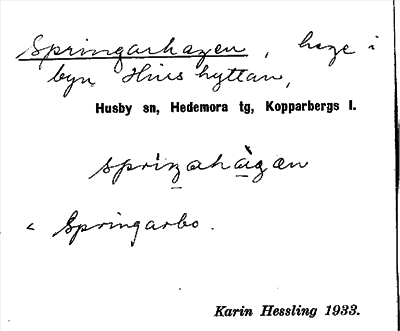 Springarhagen, hage i
byn Hins hyttan,
Husby sn, Hedemora tg, Kopparbergs l.
sprizahàgæn
< Springarbo.
Karin Hessling 1933.